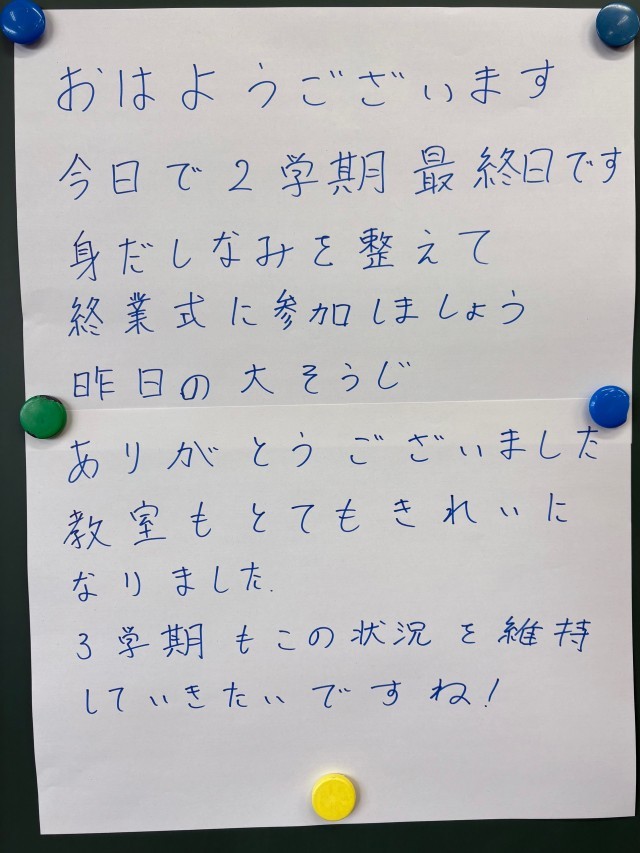 おはようございます
今日で2学期最終日です
身だしなみを整えて
終業式に参加しましょう
昨日の大そうじ
ありがとうございました
教室もとてもきれいに
なりました.
3学期もこの状況を維持
していきたいですね!